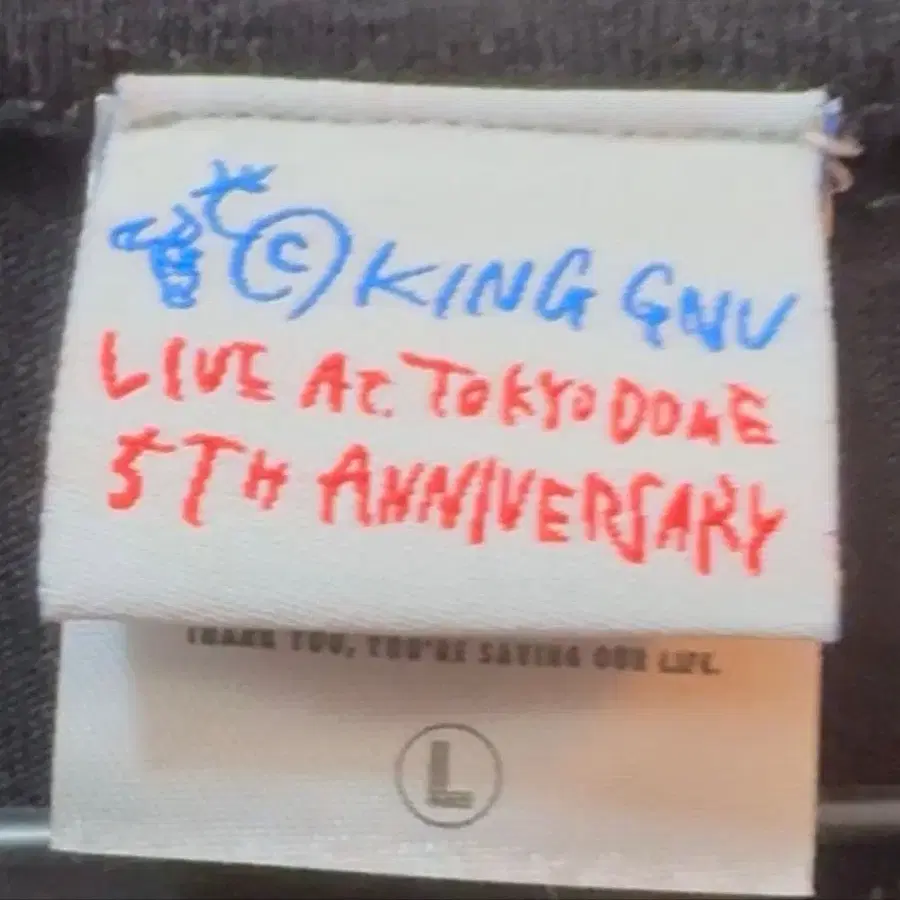 © KING GNU
LIVE AT TOKYO DOME
5TH ANNIVERSARY
THANK YOU, YOU'RE SAVING OUR LIFE.
L